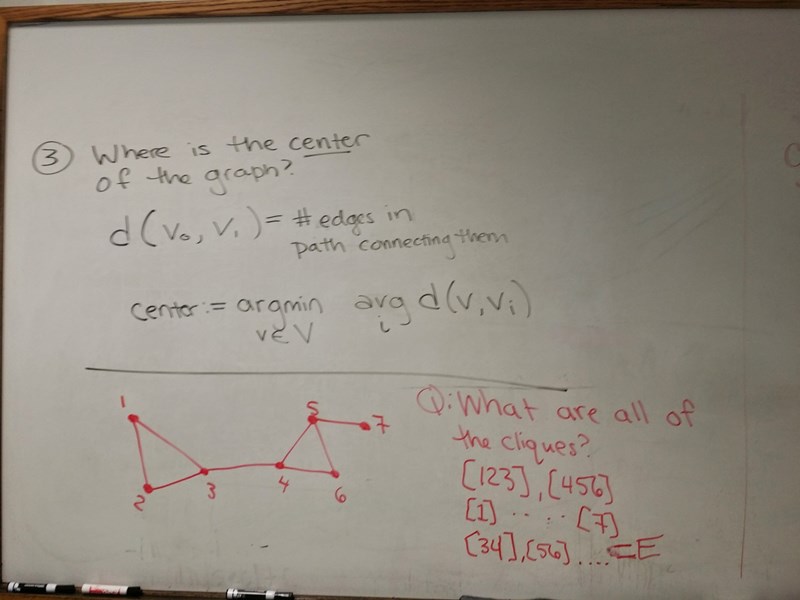 ③ Where is the center
of the graph?
d(v₀, v₁) = # edges in
path connecting them
center := argmin avg d(v, vᵢ)
v∈V i
1
2
3
4
5
6
7
Q: What are all of
the cliques?
[123], [456]
[1] ..... [7]
[34], [56] .... = E